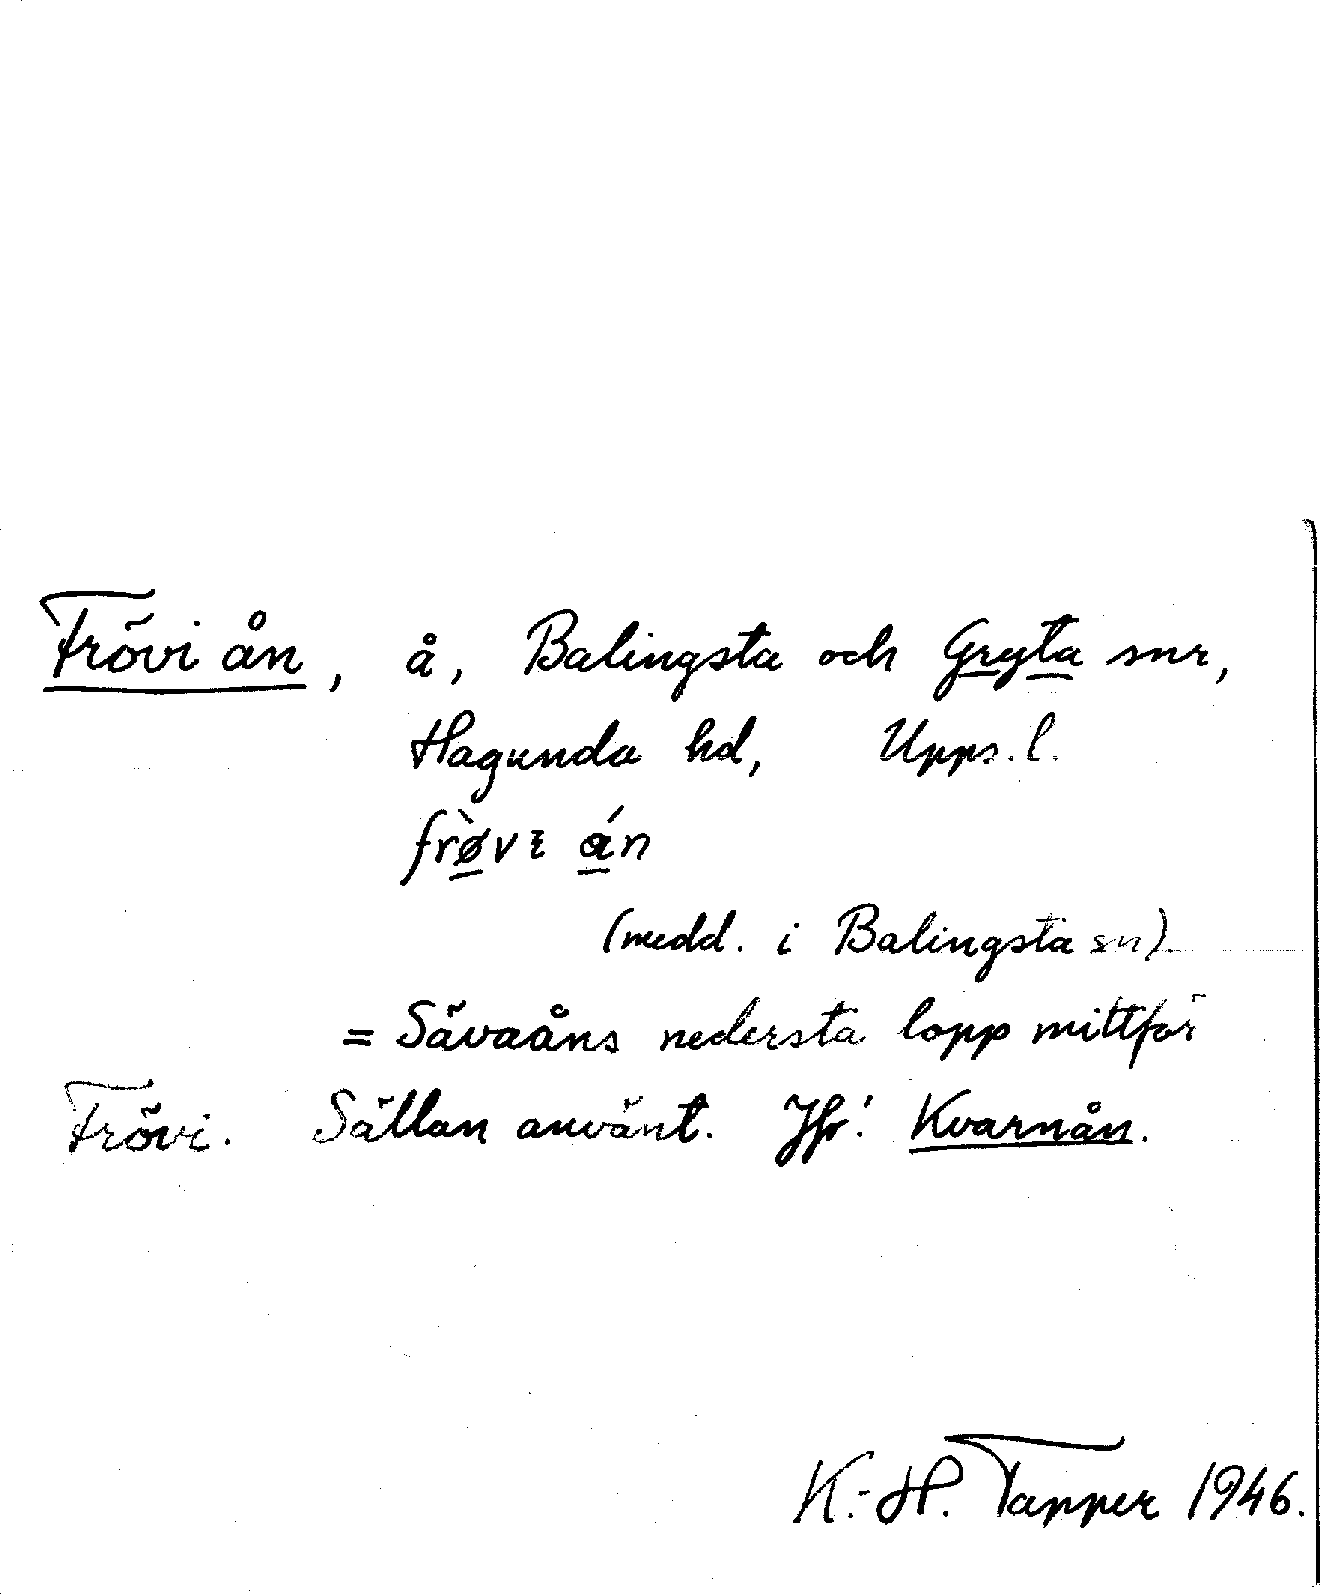 Frövi ån, å, Balingsta och Gryta snr,
Hagunda hd, Upps. l.
frø̀vɩ án
(medd. i Balingsta sn)
= Sävaåns nedersta lopp mittför
Frövi. Sällan använt. Jfr! Kvarnån.
K.-H. Tapper 1946.